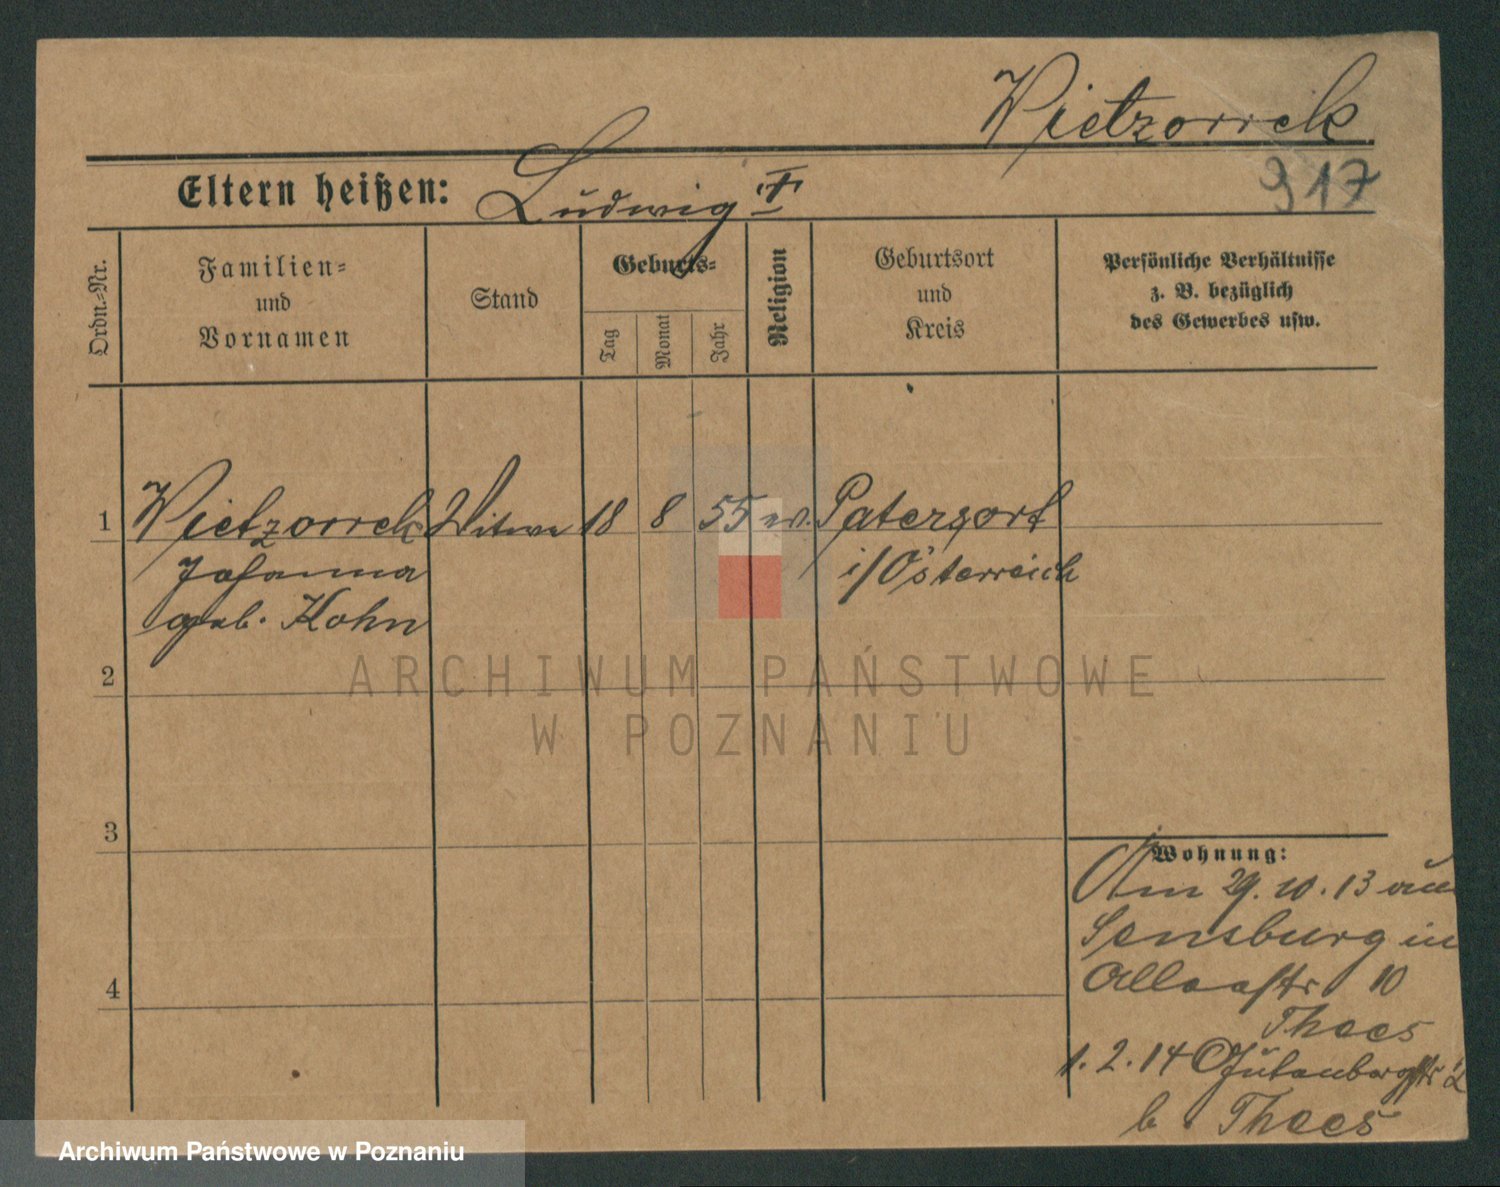 Wietzorrek
917
Eltern heißen: Ludwig †
Ordn.-Nr.
Familien-
und
Vornamen
Stand
Geburts-
Tag
Monat
Jahr
Religion
Geburtsort
und
Kreis
Persönliche Verhältnisse
z. B. bezüglich
des Gewerbes usw.
1 Wietzorrek Witwe 18 8 55 ev. Patergorf
Johanna i/Österreich
geb. Kohn
2
ARCHIWUM PAŃSTWOWE
W POZNANIU
3
Wohnung:
Am 29. 10. 13 aus
Sensburg in
10
4
Thees
1. 2. 14 Gutenbergstr
b. Thees
Archiwum Państwowe w Poznaniu